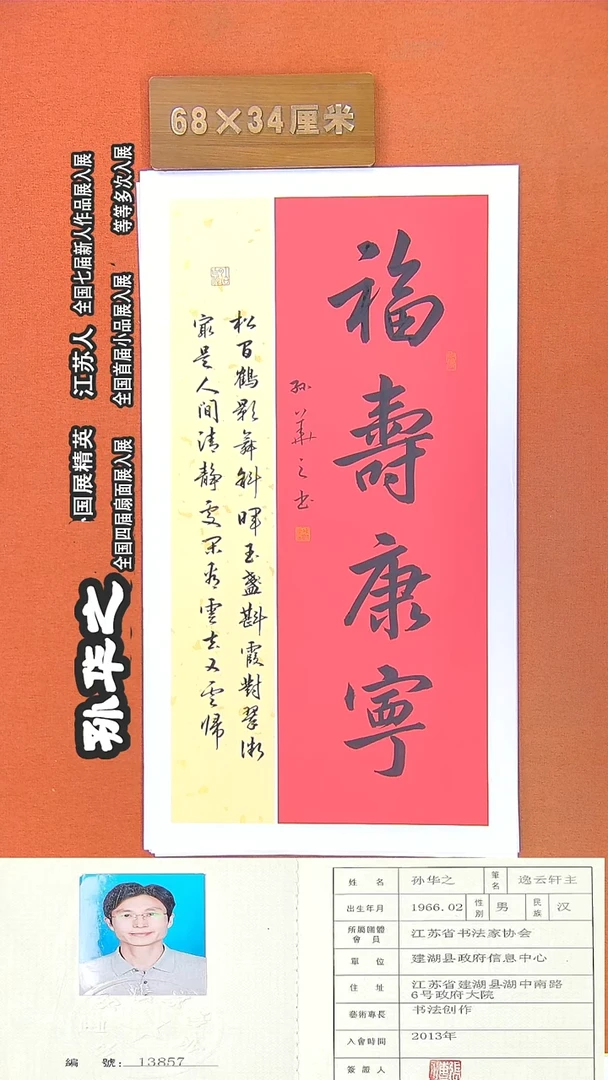 68×34厘米
福壽康寧
孙華之书
松百鶴影舞斜暉玉盞斟霞對翠微
最是人间清静處闲看雲去又雲歸
孙华之
·国展精英 江苏人 全国七届新人作品展入展
全国四届扇面展入展 全国首届小品展入展 等等多次入展
編 號: 13857
姓 名 孙华之 筆名 逸云轩主
出生年月 1966.02 性別 男 民族 汉
所屬團體會員 江苏省书法家协会
單 位 建湖县政府信息中心
住 址 江苏省建湖县湖中南路
6号政府大院
藝術專長 书法创作
入會時間 2013年
簽證人